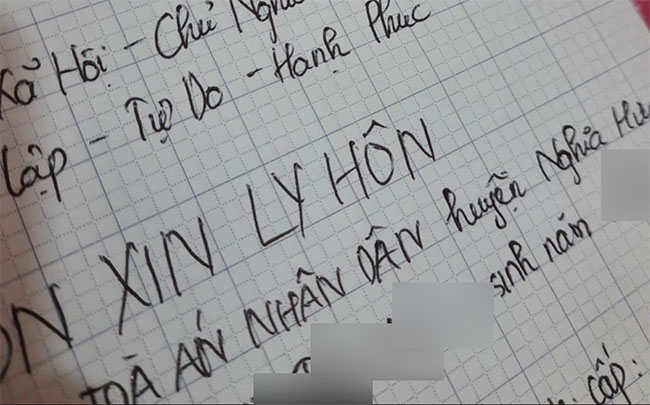 Xã Hội - Chủ Nghĩa
Lập - Tự Do - Hạnh Phúc
ƠN XIN LY HÔN
TOÀ ÁN NHÂN DÂN huyện Nghĩa Hư
sinh năm
cấp: